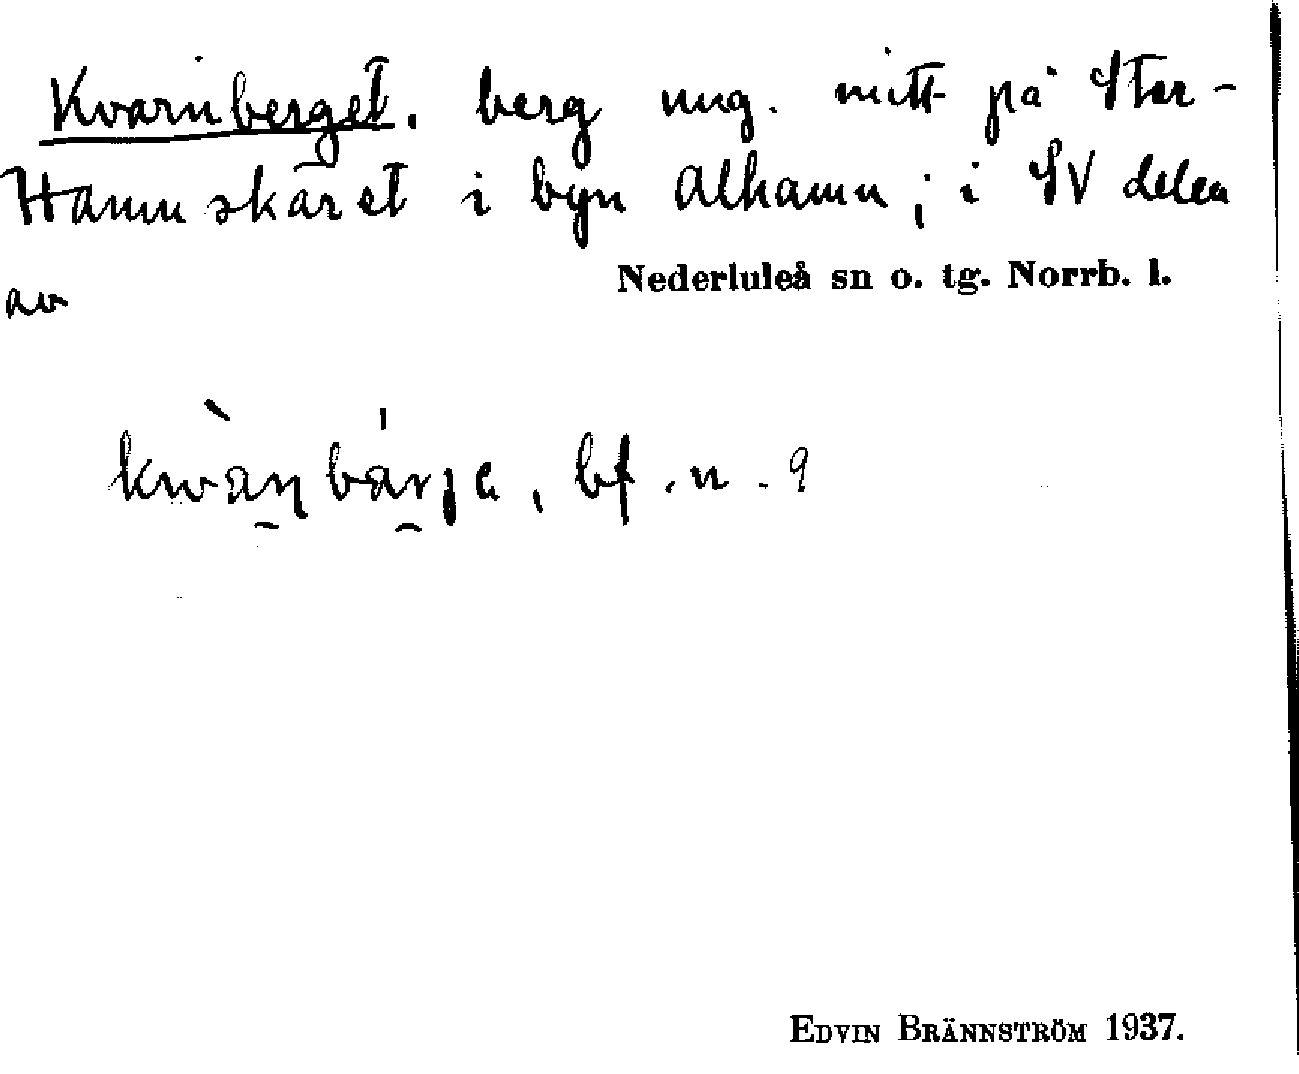 Kvarnberget. berg ung. mitt på Stor-
Hamnskäret i byn Alhamn; i SV delen
av
Nederluleå sn o. tg. Norrb. l.
kwàn̲bárja, bf. n. 9
EDVIN BRÄNNSTRÖM 1937.